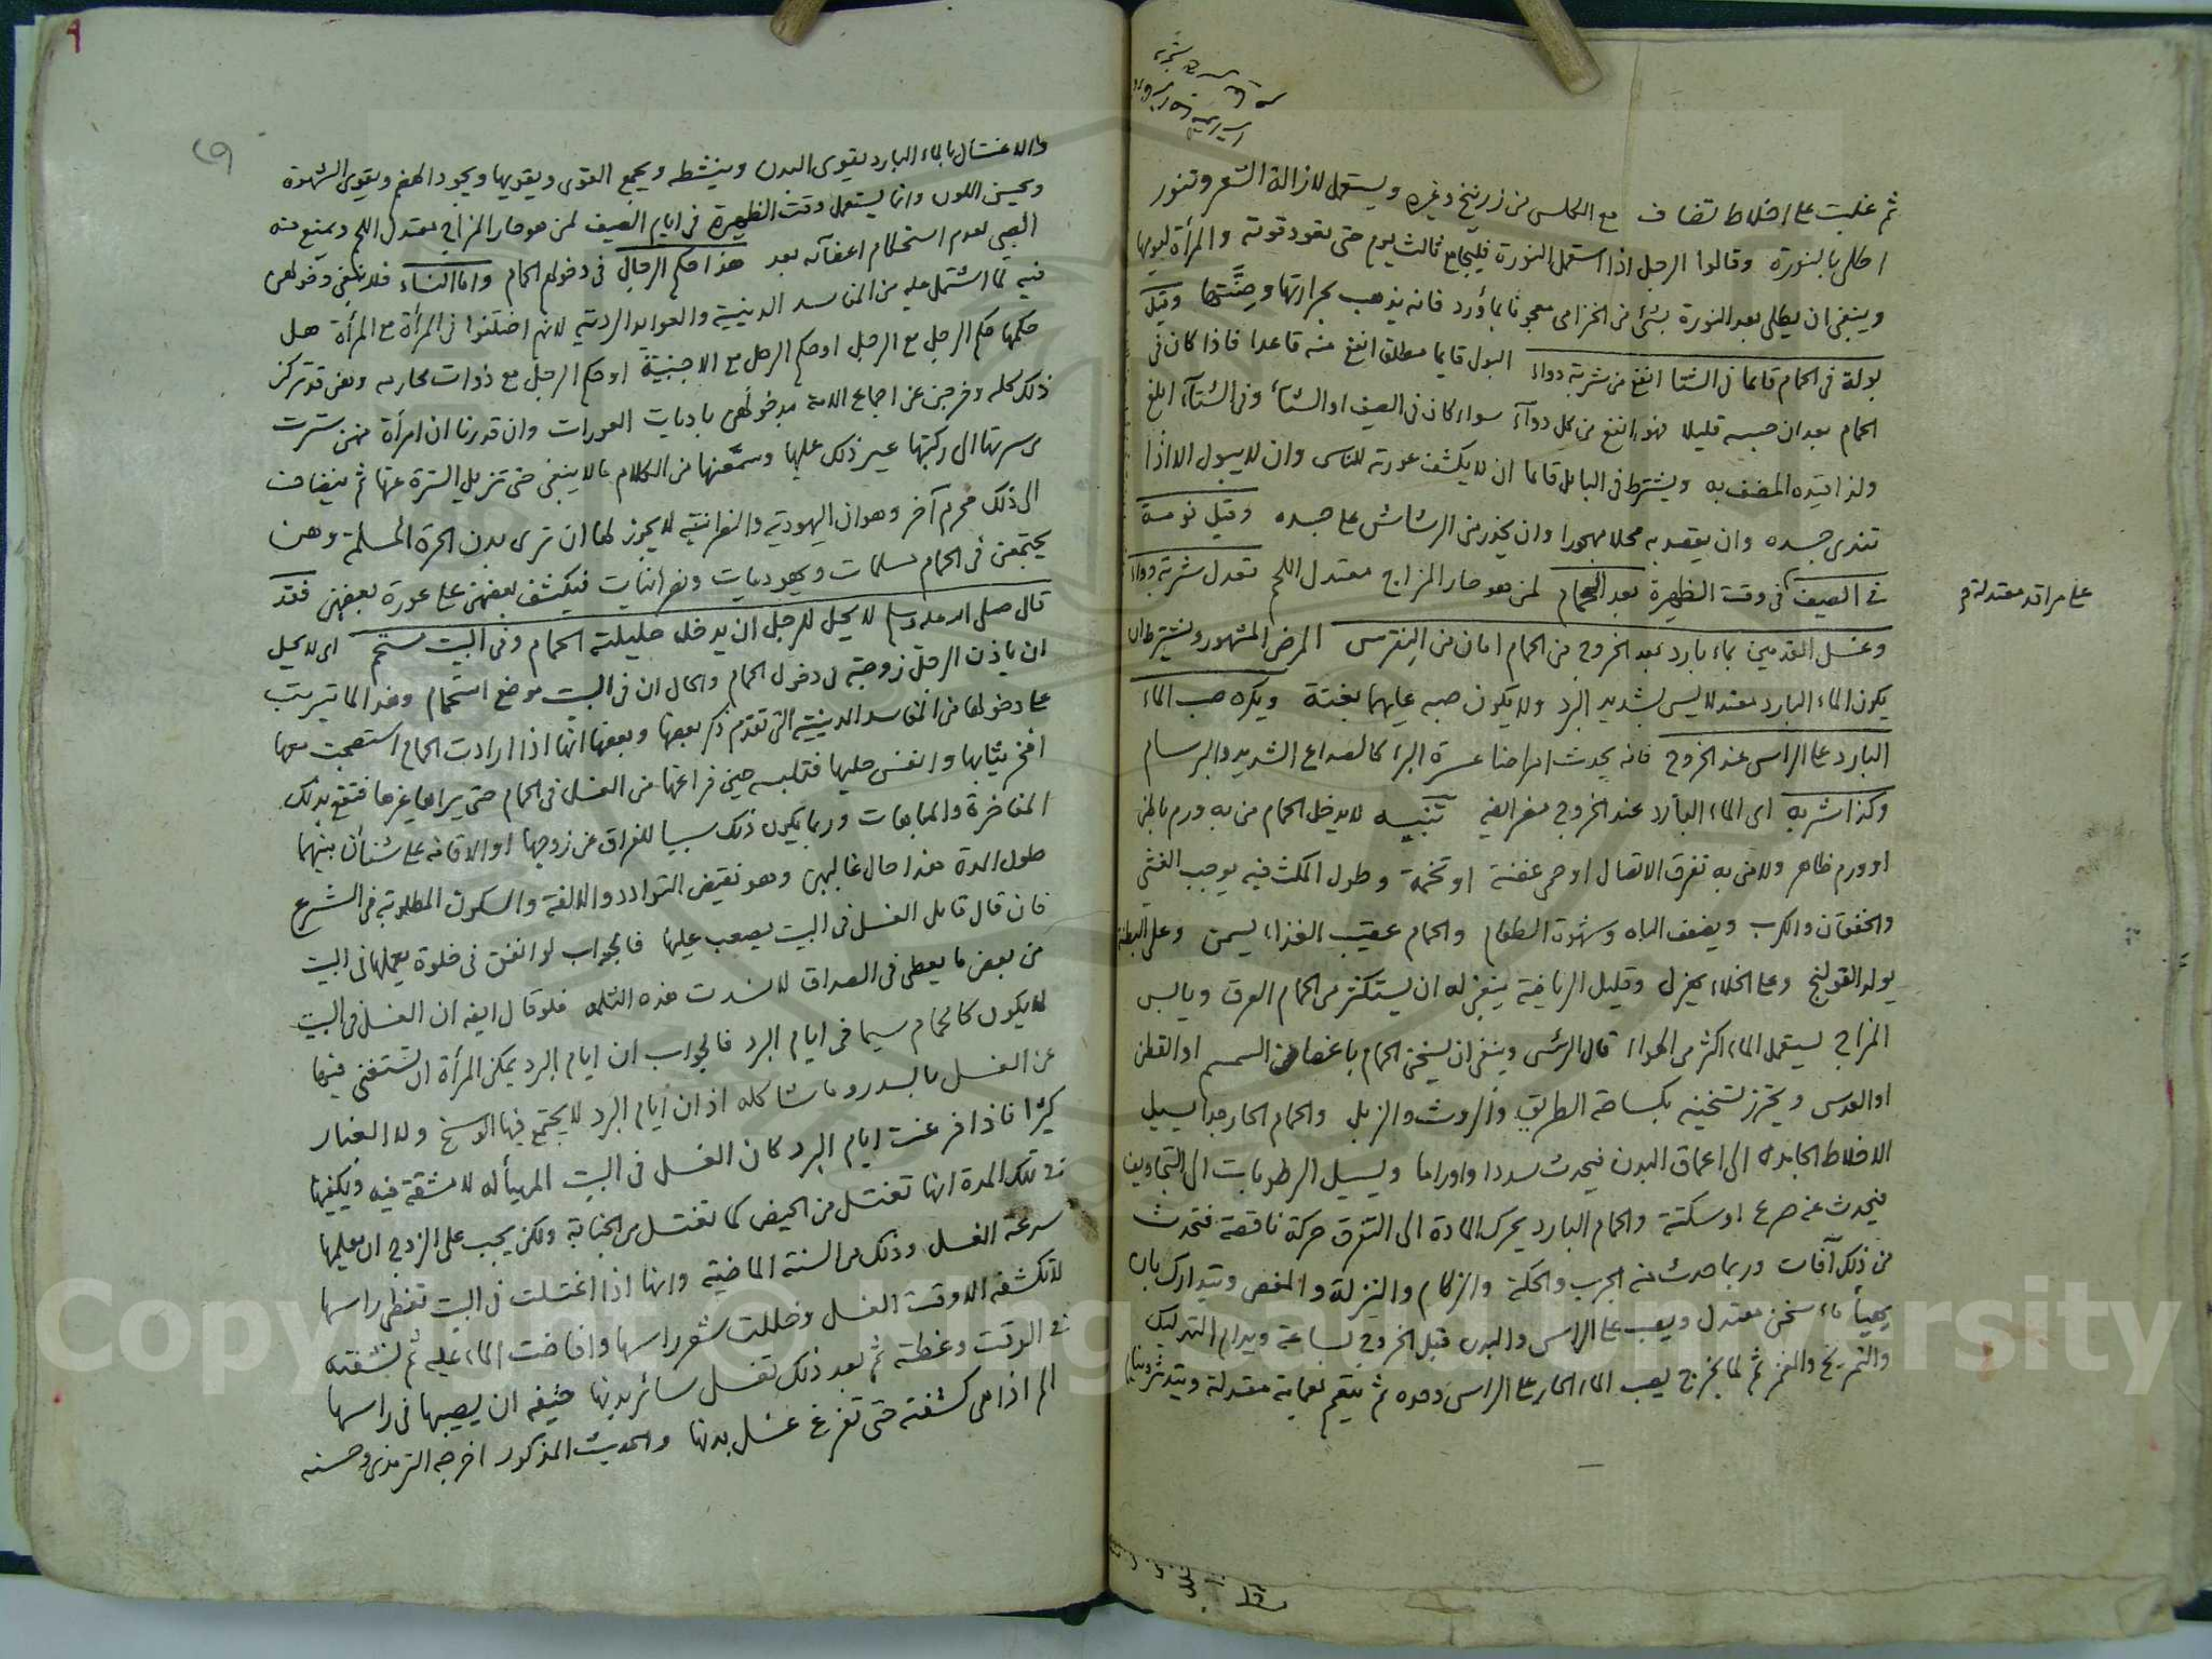 ثم غلبت على اخلاط تضاف مع الكلس من زرنيخ وغيره ويستعمل لازالة الشعر وتنور
اطلى بالنورة وقالوا الرجل اذا استعمل النورة فليجامع ثالث يوم حتى تعود قوته والمرأة ليومها
وينبغي ان يطلى بعد النورة بشئ من الخزامى معجونا بماورد فانه يذهب بحرارتها وقيل
بولة في الحمام قايما في الشتا انفع من شربة دواء البول قايما مطلقا انفع منه قاعدا فاذا كان في
الحمام بعد ان حبسه قليلا فهو انفع من كل دوآء سواء كان في الصيف او الشتآء وفي الشتآء ابلغ
ولذا قيده المصنف به ويشترط في البايل قايما ان لا يكشف عورته للناس وان لا يبول الا اذا
تندى جسده وان يقصد به محلا مهجورا وان يحذر من الرشاش على جسده وقيل نومة
في الصيف في وقت الظهيرة بعد الحمام لمن هو حار المزاج معتدل اللحم تعدل شربة دواء
على مراقد معتدلة
وغسل القدمين بماء بارد بعد الخروج من الحمام امان من النقرس المرض المشهور ويشترط ان
يكون الماء البارد معتدلا ليس بشديد البرد ولا يكون صبه عليهما بغتة ويكره صب الماء
البارد على الراس عند الخروج فانه يحدث امراضا عسرة البرا كالصداع الشديد والبرسام
وكذا شربه اى الماء البارد عند الخروج مضر ايضا تنبيه لا يدخل الحمام من به ورم باطن
او ورم ظاهر ولا من به تفرق الاتصال او حمى عفنة او تخمة وطول المكث فيه يوجب الغشي
والخفقان والكرب ويضعف الباه وشهوة الطعام والحمام عقيب الغذاء يسمن وعلى البطنة
يولد القولنج وعلى الخلاء يهزل وقليل الرياضة ينبغي له ان يستكثر من الحمام العرق ويابس
المزاج يستعمل الماء اكثر من الهواء قال الرئيس وينبغي ان يسخن الحمام باغصان السمسم او القطن
او العدس ويحترز تسخينه بكساحة الطريق والروث والزبل والحمام الحار جدا يسيل
الاخلاط الجامدة الى اعماق البدن فيحدث سددا واوراما ويسيل الرطوبات الى التجاويف
فيحدث عنه صرع او سكتة والحمام البارد يحرك المادة الى التعرق حركة ناقصة فتحدث
من ذلك آفات وربما حدث منه الجرب والحكة والزكام والنزلة والمغص ويتدارك بان
يهيأ ماء سخن معتدل ويصب على الراس والبدن قبل الخروج بساعة ويدام التدليك
والتمريخ والغمز ثم لما يخرج يصب الماء الحار على الراس وحده ثم يتعمم بعمامة معتدلة ويتدثر
والاغتسال بالماء البارد يقوى البدن وينشطه ويجمع القوى ويقويها ويجود الهضم ويقوى الشهوة
ويحسن اللون وانما يستعمل وقت الظهيرة في ايام الصيف لمن هو حار المزاج معتدل اللحم ويمنع منه
الصبي لعدم استحكام اعضآئه بعد هذا حكم الرجال في دخولهم الحمام واما النساء فلا ينبغي دخولهن
فيه لما اشتمل عليه من المفاسد الدينية والعوايد الردية لانهم اختلفوا في المرأة مع المرأة هل
حكمها حكم الرجل مع الرجل او حكم الرجل مع الاجنبية او حكم الرجل مع ذوات محارمه وهن قد تركن
ذلك كله وخرجن عن اجماع الامة بدخولهن باديات العورات وان قدرنا ان امرأة منهن سترت
من سرتها الى ركبتها عيرن ذلك عليها وسمعنها من الكلام ما لا ينبغي حتى تزيل السترة عنها ثم ينضاف
الى ذلك محرم آخر وهو ان اليهودية والنصرانية لا يجوز لها ان ترى بدن الحرة المسلمة وهن
يجتمعن في الحمام مسلمات ويهوديات ونصرانيات فيكشف بعضهن على عورة بعضهن فقد
قال صلى الله عليه وسلم لا يحل للرجل ان يدخل حليلته الحمام وفي البيت مستحم اى لا يحل
ان ياذن الرجل زوجته في دخول الحمام والحال ان في البيت موضع استحمام وهذا لما يترتب
على دخولها من المفاسد الدينية التي تقدم ذكر بعضها وبعضها انها اذا ارادت الحمام استصحبت معها
افخر ثيابها وانفس حليها فتلبسه حين فراغها من الغسل في الحمام حتى يراها غيرها فتقع بذلك
المفاخرة والمباهات وربما يكون ذلك سببا للفراق عن زوجها او الاقامة على شنآن بينهما
طول المدة هذا حال غالبهن وهو نقيض التوادد والالفة والسكون المطلوبة في الشرع
فان قال قايل الغسل في البيت يصعب عليها فالجواب لو انفق في خلوة يعملها في البيت
من بعض ما يعطى في الصداق لانسدت هذه الثلمة فلو قال ايضا ان الغسل في البيت
لا يكون كالحمام سيما في ايام البرد فالجواب ان ايام البرد يمكن المرأة ان تستغنى فيها
عن الغسل بالسدر وما شاكله اذ ان ايام البرد لا يجتمع فيها الوسخ ولا الغبار
كثيرا فاذا فرغت ايام البرد كان الغسل في البيت المهيأ له لا مشقة فيه ويكفيها
في تلك المدة انها تغتسل من الحيض كما تغتسل من الجنابة ولكن يجب على الزوج ان يعلمها
سرعة الغسل وذلك من السنة الماضية وانها اذا اغتسلت في البيت تغطى راسها
لا تكشفه الا وقت الغسل وخللت شعر راسها وافاضت الماء عليه ثم نشفته
في الوقت وغطته ثم بعد ذلك تغسل سائر بدنها خيفة ان يصيبها في راسها
الم اذا هي كشفته حتى تفرغ غسل بدنها والحديث المذكور اخرجه الترمذي وحسنه
Copyright © King Saud University